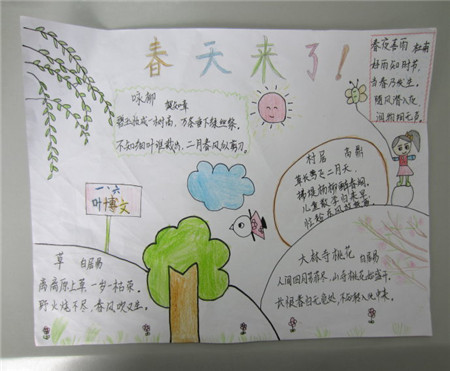 春天来了！
咏柳
贺知章
碧玉妆成一树高，万条垂下绿丝绦。
不知细叶谁裁出，二月春风似剪刀。
春夜喜雨 杜甫
好雨知时节，
当春乃发生。
随风潜入夜，
润物细无声。
村居 高鼎
草长莺飞二月天，
拂堤杨柳醉春烟。
儿童散学归来早，
一·六
叶博文
草 白居易
离离原上草 一岁一枯荣。
野火烧不尽，春风吹又生。
大林寺桃花 白居易
人间四月芳菲尽，山寺桃花始盛开。
长恨春归无觅处，不知转入此中来。